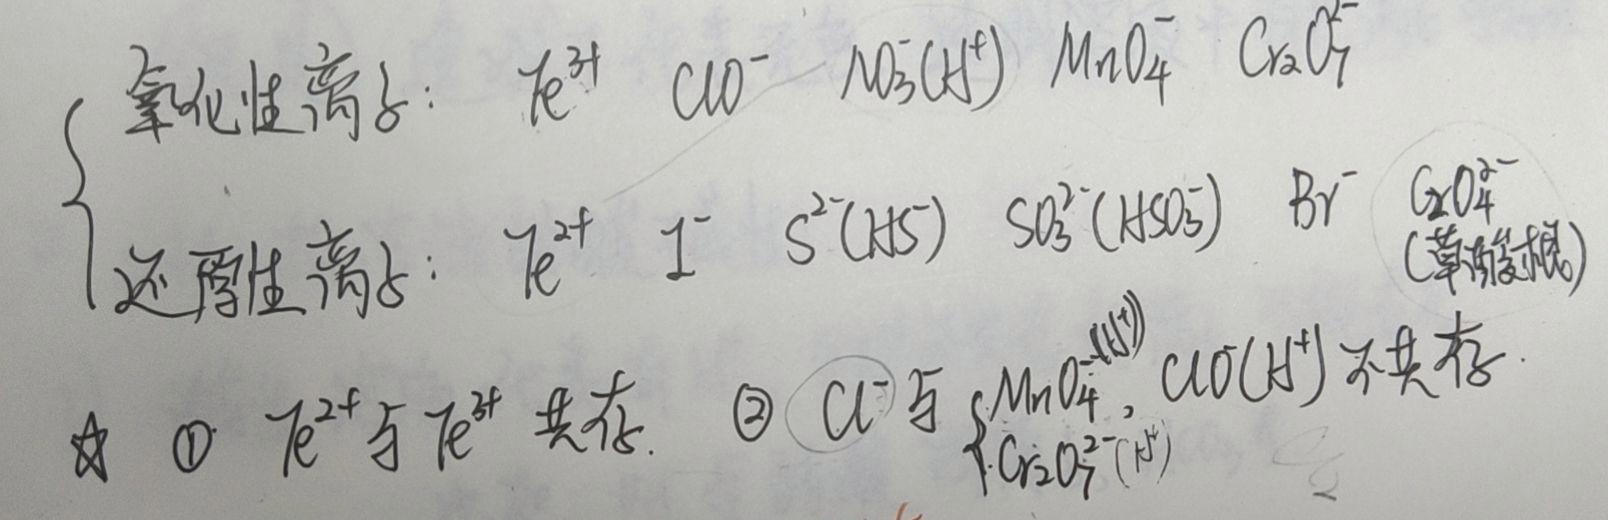 氧化性离子: Fe³⁺ ClO⁻ NO₃⁻(H⁺) MnO₄⁻ Cr₂O₇²⁻
还原性离子: Fe²⁺ I⁻ S²⁻(HS⁻) SO₃²⁻(HSO₃⁻) Br⁻ C₂O₄²⁻
(草酸根)
☆ ① Fe²⁺与Fe³⁺共存. ② Cl⁻与{MnO₄⁻(H⁺), ClO⁻(H⁺)不共存.
Cr₂O₇²⁻(H⁺)